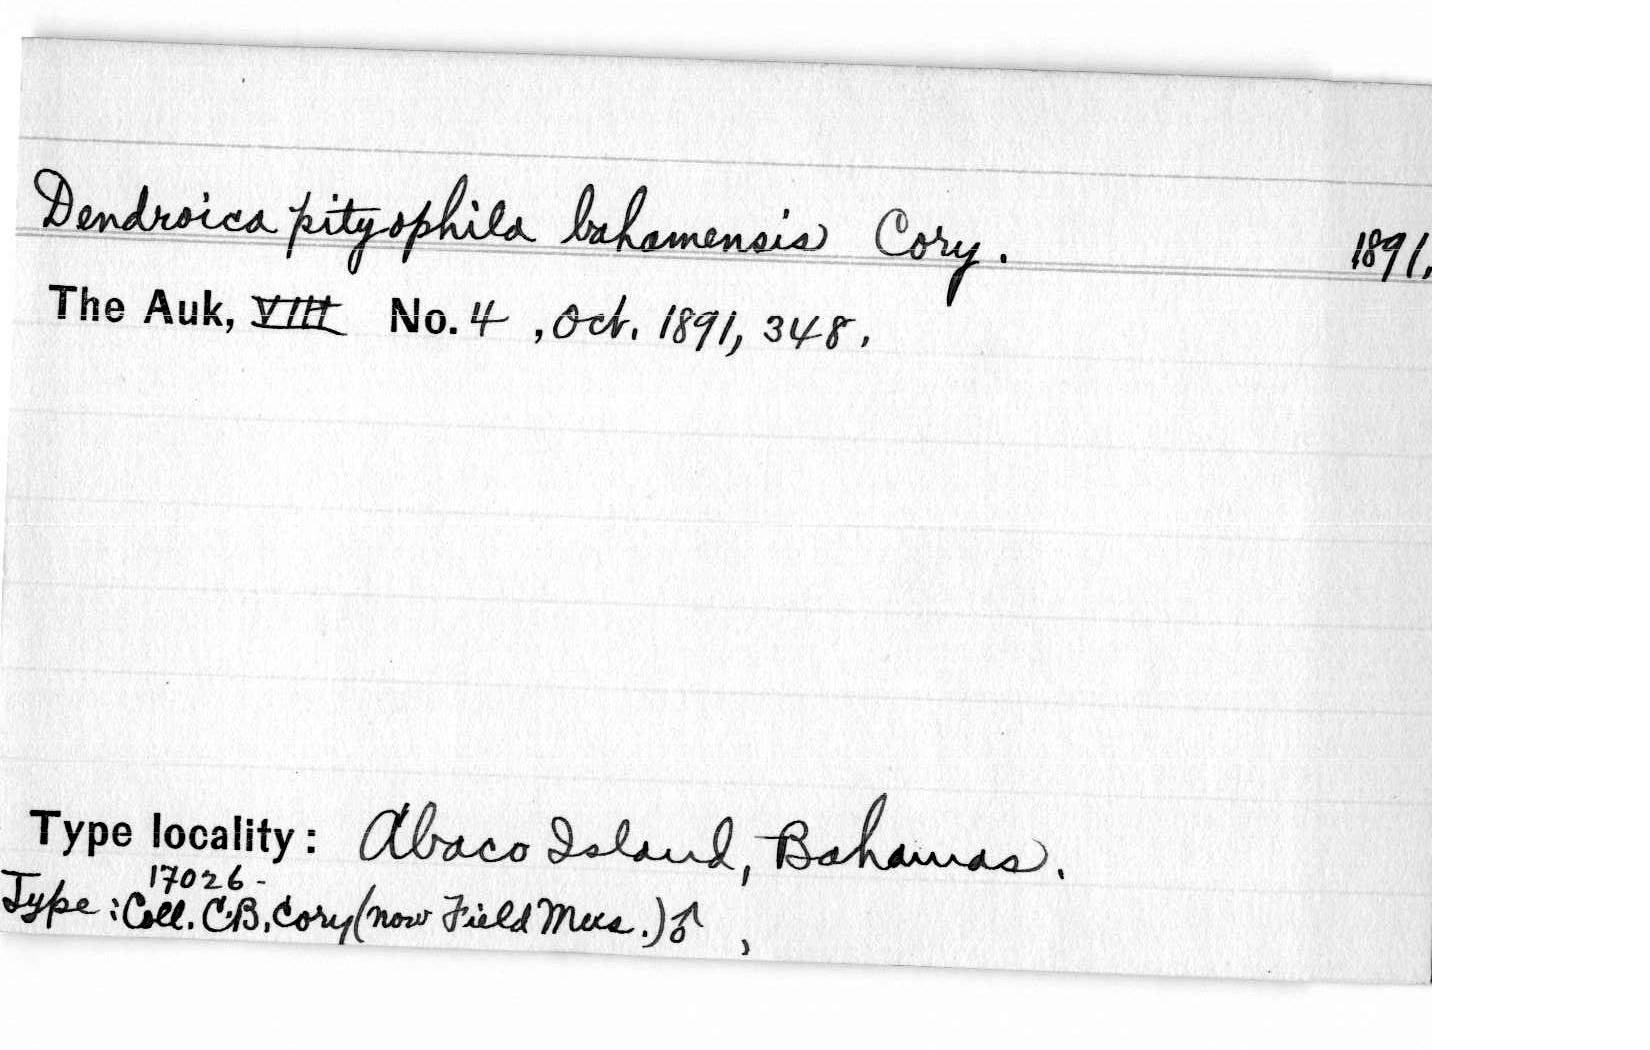 Dendroica pityophila bahamensis Cory. 1891.
The Auk, VIII No. 4, Oct. 1891, 348.
Type locality: Abaco Island, Bahamas.
17026 -
Type: Coll. C.B. Cory (now Field Mus.) ♂ ,